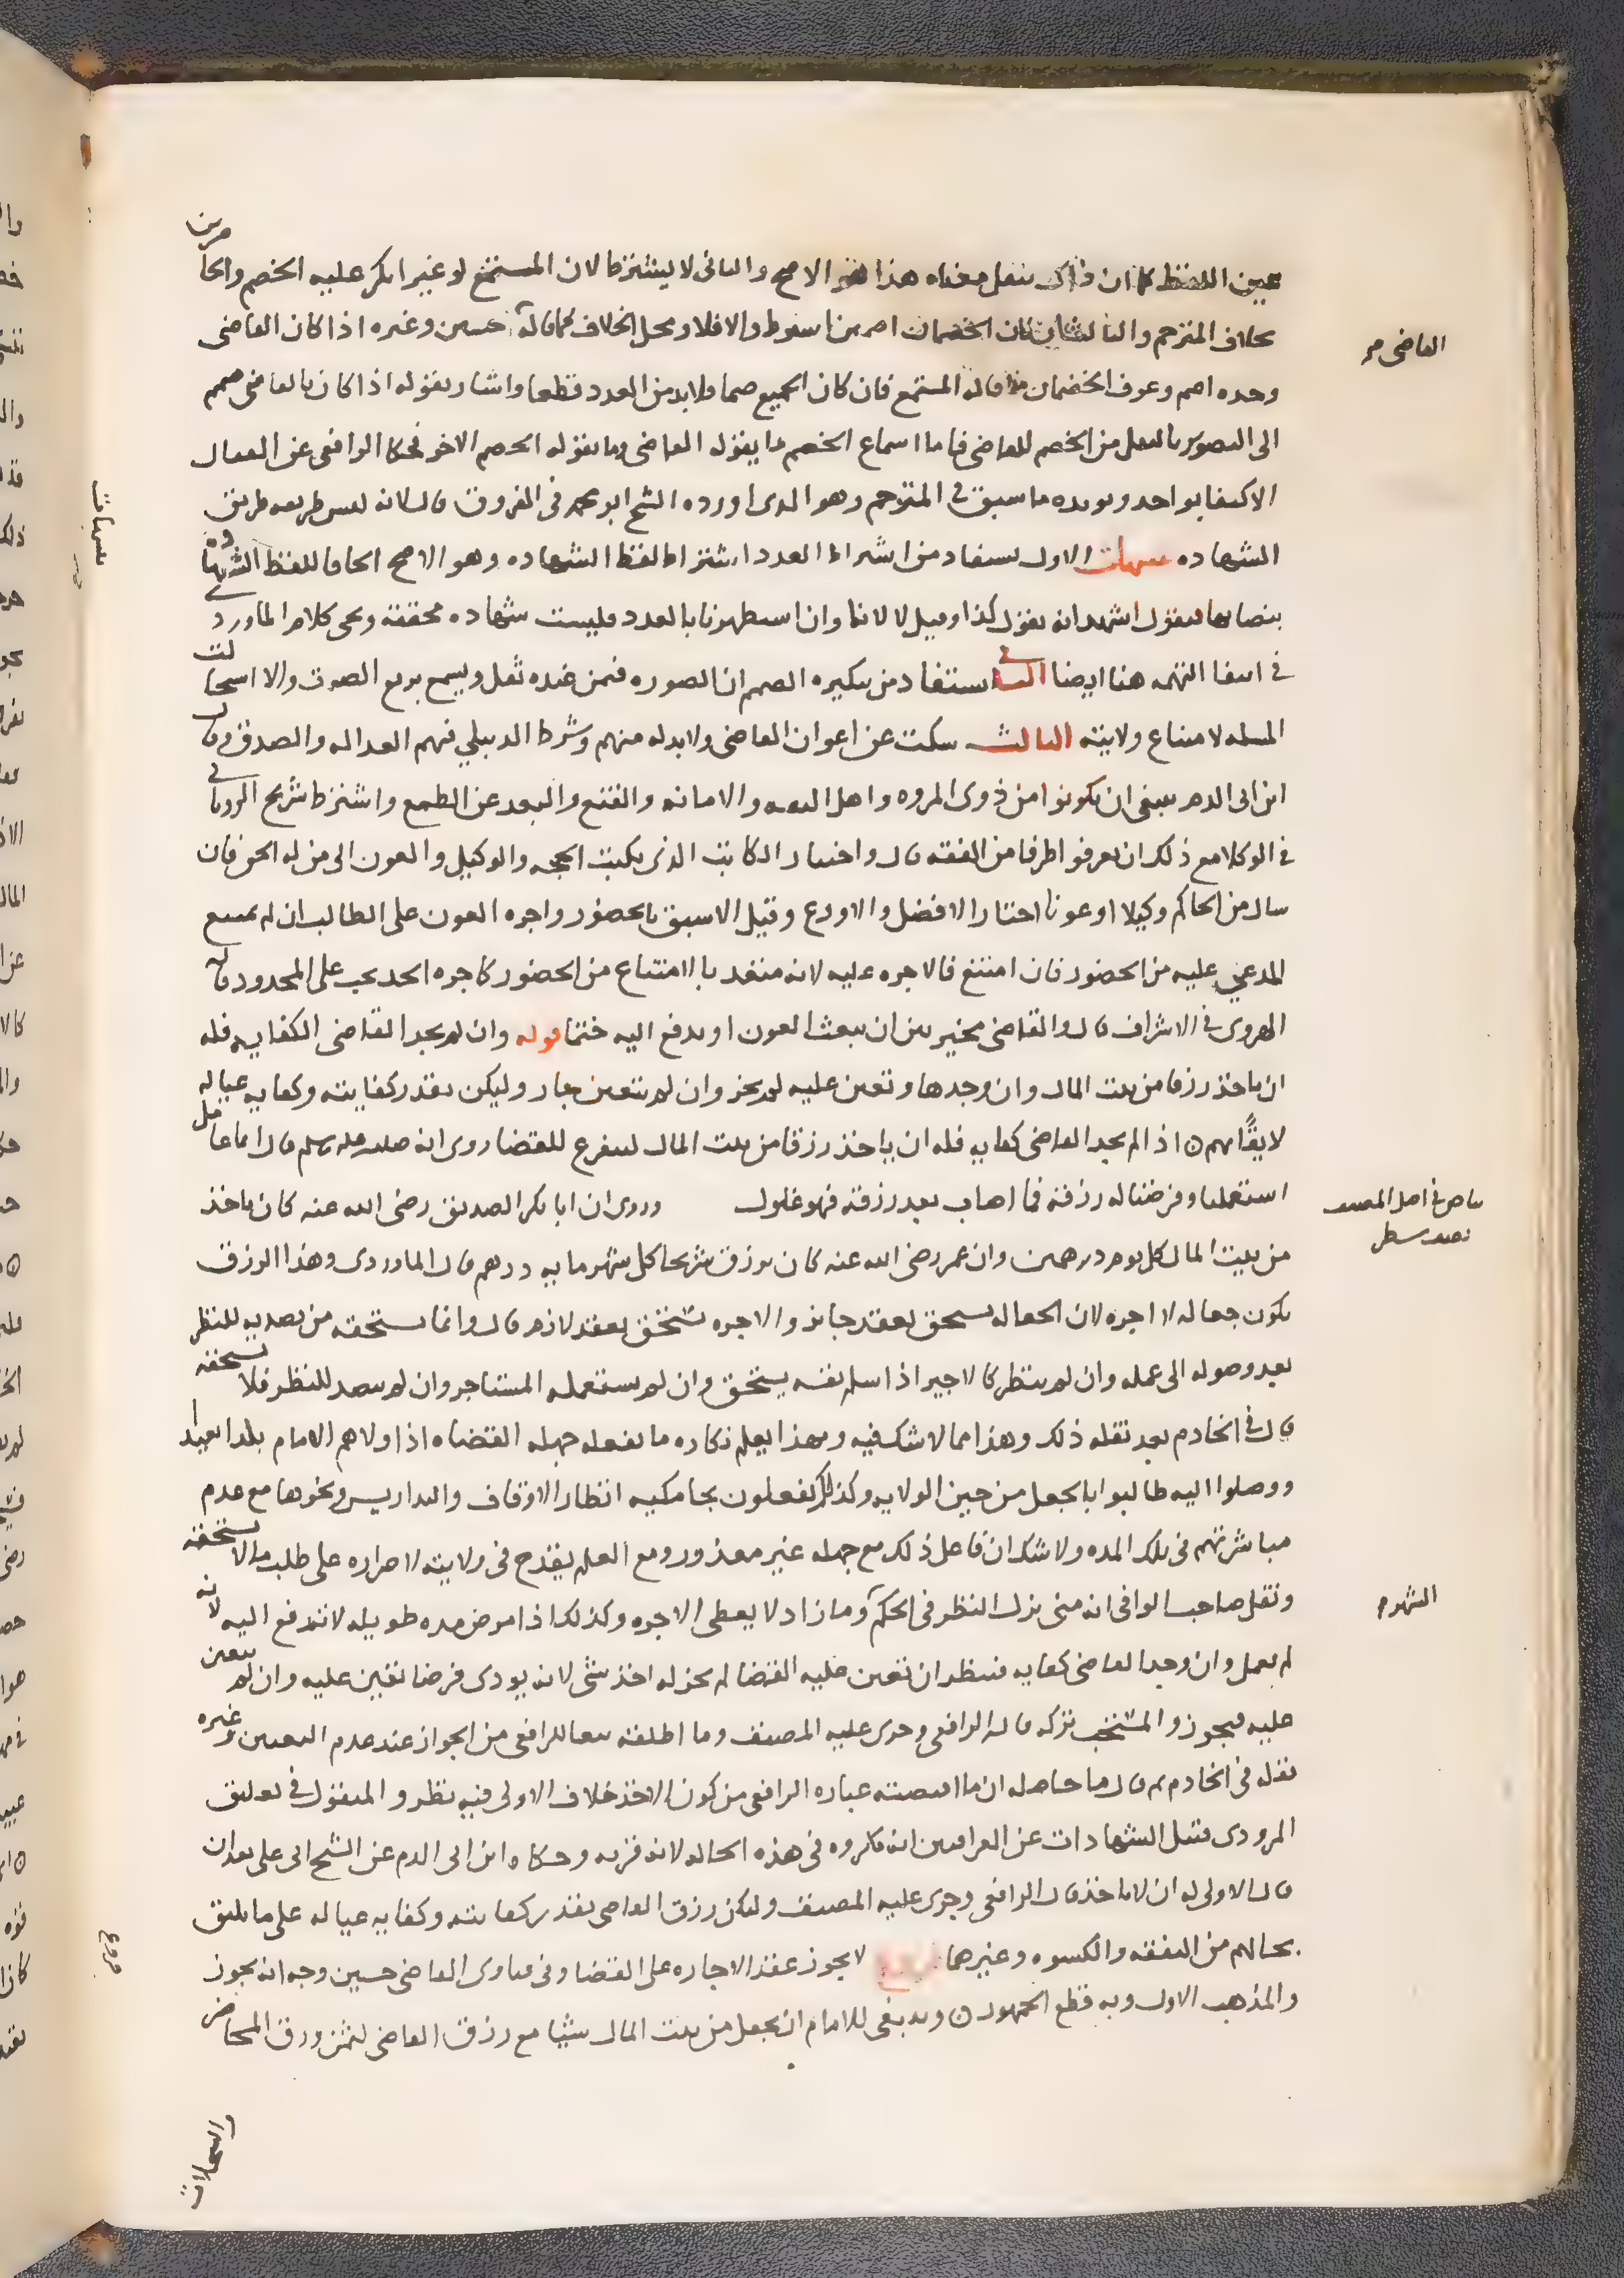 عين اللفظ كما ان ذاك ينقل معناه هذا هو الاصح والثاني لا يشترط لان المستمع لو غير انكر عليه الخصم والحاضرين
بخلاف المترجم والثالث ان كان الخصمان اصمين اشترط والا فلا ومحل الخلاف كما قاله حسين وغيره اذا كان القاضي
وحده اصم وعرف الخصمان ما قاله المستمع فان كان الجميع صما فلابد من العدد قطعا واشار بقوله اذا كان بالقاضي صمم
الى التصوير بالنقل من الخصم للقاضي فاما اسماع الخصم ما يقوله القاضي وما يقوله الخصم الاخر فحكا الرافعي عن القفال
الاكتفا بواحد ويويده ما سبق في المترجم وهو الذي اورده الشيخ ابو محمد في الفروق قال لانه ليس طريقه طريق
الشهاده تنبيهات الاول يستفاد من اشتراط العدد اشتراط لفظ الشهاده وهو الاصح الحاقا للفظ الشهاده
بنصابها فيقول اشهد انه يقول كذا وقيل لا لانا وان استظهرنا بالعدد فليست شهاده محققه ويجي كلام الماوردي
في انتفا التهمه هنا ايضا الثاني استفاد من تنكيره الصمم ان الصوره فيمن عنده ثقل ويسمع برفع الصوت والا استحالت
المسله لامتناع ولايته الثالث سكت عن اعوان القاضي ولابد له منهم وشرط الدبيلي فيهم العداله والصدق وقال
ابن ابي الدم ينبغي ان يكونوا من ذوي المروه واهل الثقه والامانه والقنع والبعد عن الطمع واشترط شريح الروياني
في الوكلا مع ذلك ان يعرفوا طرفا من الفقه قال واختيار الكاتب الذي يكتب الحجه والوكيل والعون الى من له الحق فان
سال من الحاكم وكيلا او عونا اختار الافضل والاورع وقيل الاسبق بالحضور واجره العون على الطالب ان لم يمتنع
المدعي عليه من الحضور فان امتنع فالاجره عليه لانه متعد بالامتناع من الحضور كاجره الحد يجب على المحدود قاله
الهروي في الاشراف قال والقاضي مخير بين ان يبعث العون او يدفع اليه ختما قوله وان لم يجد القاضي الكفايه فله
ان ياخذ رزقا من بيت المال وان وجدها وتعين عليه لم يجز وان لم يتعين جاز وليكن بقدر كفايته وكفايه عياله
لايقًا بهم ه اذا لم يجد القاضي كفايه فله ان ياخذ رزقا من بيت المال ليتفرغ للقضا روي انه صلى الله عليه وسلم قال ايما عامل
استعملناه وفرضنا له رزقه فما اصاب بعد رزقه فهو غلول وروي ان ابا بكر الصديق رضي الله عنه كان ياخذ
من بيت المال كل يوم درهمين وان عمر رضي الله عنه كان يرزق شريحا كل شهر مايه درهم قال الماوردي وهذا الرزق
يكون جعاله لا اجره لان الجعاله تستحق بعقد جايز والاجره تستحق بعقد لازم قال وانما يستحقه من تصديه للنظر
بعد وصوله الى عمله وان لم ينظر كالاجير اذا سلم نفسه يستحق وان لم يستعمله المستاجر وان لم يتصد للنظر فلا يستحقه
قال في الخادم بعد نقله ذلك وهذا مما لا شك فيه وبهذا يعلم نكاره ما يفعله جهله القضاه اذا ولاهم الامام بلدا بعيدا
ووصلوا اليه طالبوا بالجعل من حين الولايه وكذلك يفعلون بجامكيه انظار الاوقاف والتداريس ونحوها مع عدم
مباشرتهم في تلك المده ولا شك ان فاعل ذلك مع جهله غير معذور ومع العلم يقدح في ولايته لاصراره على طلب ما لا يستحقه
ونقل صاحب الوافي انه متى ترك النظر في الحكم وما زاد لا يعطى الاجره وكذلك اذا مرض مده طويله لا تدفع اليه لانه
لم يعمل وان وجد القاضي كفايه فينظر ان تعين عليه القضا لم يجز له اخذ شي لانه يودي فرضا تعين عليه وان لم يتعين
عليه فيجوز والمستحب تركه قاله الرافعي وجرى عليه المصنف وما اطلقه تبعا للرافعي من الجواز عند عدم التعين وغيره
نقله في الخادم ثم قال ما حاصله ان ما اقتضته عباره الرافعي من كون الاخذ خلاف الاولى فيه نظر والمنقول في تعليق
المروذي قبيل الشهادات عن العراقيين انه مكروه في هذه الحاله لانه قربه وحكاه ابن ابي الدم عن الشيخ ابي علي بعد ان
قال الاولى له ان لا ياخذ قال الرافعي وجرى عليه المصنف وليكن رزق القاضي بقدر كفايته وكفايه عياله على ما يليق
بحالهم من النفقه والكسوه وغيرهما لا يجوز عقد الاجاره على القضا وفي فتاوى القاضي حسين وجه انه يجوز
والمذهب الاول وبه قطع الجمهور ه وينبغي للامام ان يجعل من بيت المال شيا مع رزق القاضي لثمن ورق المحاضر
والسجلات
القاضي
بياض في اصل المصنف
نصف سطر
الشهر
تنبيهات
فروع